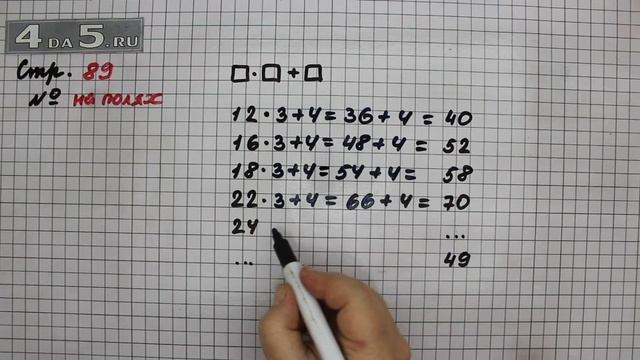 4DA5.RU
Стр. 89
№ на полях
□·□+□
12·3+4=36+4=40
16·3+4=48+4=52
18·3+4=54+4=58
22·3+4=66+4=70
24 ...
... 49